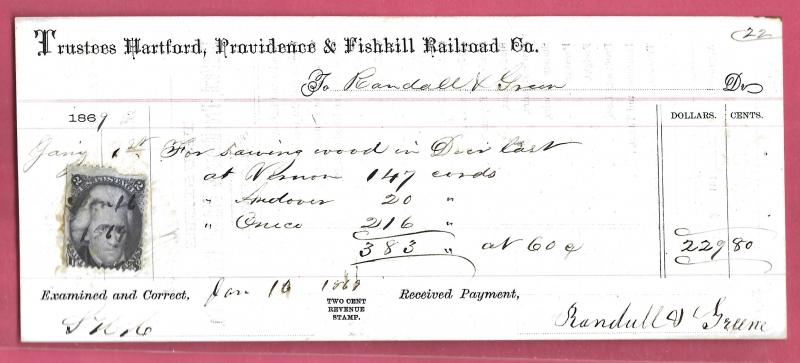 22
Trustees Hartford, Providence & Fishkill Railroad Co.
To Randall & Green Dr
1869 DOLLARS. CENTS.
1st For sawing wood in Decr last
at Vernon 147 cords
" Andover 20 "
" Oneco 216 "
383 " at 60 c 229 80
U.S. POSTAGE 2
1869
Examined and Correct, Jan 16 1869 TWO CENT REVENUE STAMP. Received Payment,
Randall & Greene